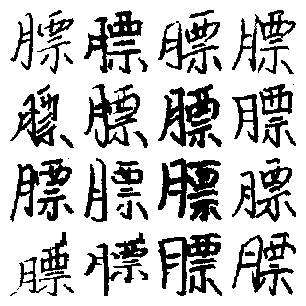 膘膘膘膘
膘膘膘膘
膘膘膘膘
膘膘膘膘